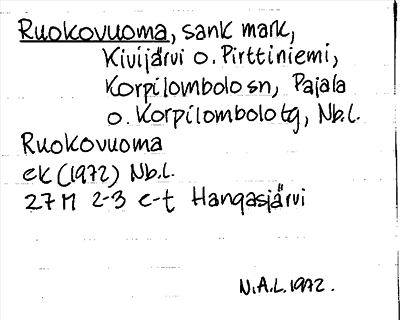 Ruokovuoma, sank mark,
Kivijärvi o. Pirttiniemi,
Korpilombolo sn, Pajala
o. Korpilombolo tg, Nb.l.
Ruokovuoma
ek (1972) Nb.l.
27 M 2-3 c-t Hangasjärvi
N.A.L. 1972.